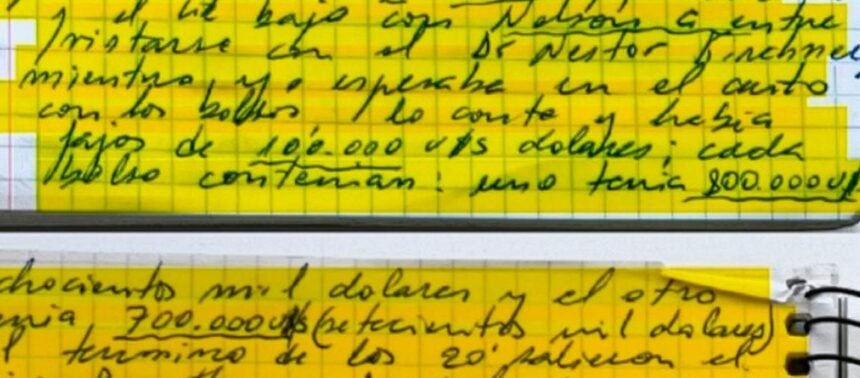 y el Lic bajo con Nelson a entre
vistarse con el Dr Nestor Kirchner
mientras yo esperaba en el auto
con los bolsos lo conte y habia
fajos de 100.000 u$s dolares; cada
bolso contenian: uno tenia 800.000 u$
chocientos mil dolares y el otro
enia 700.000 u$s (setecientos mil dolares)
l termino de los 20' salieron el